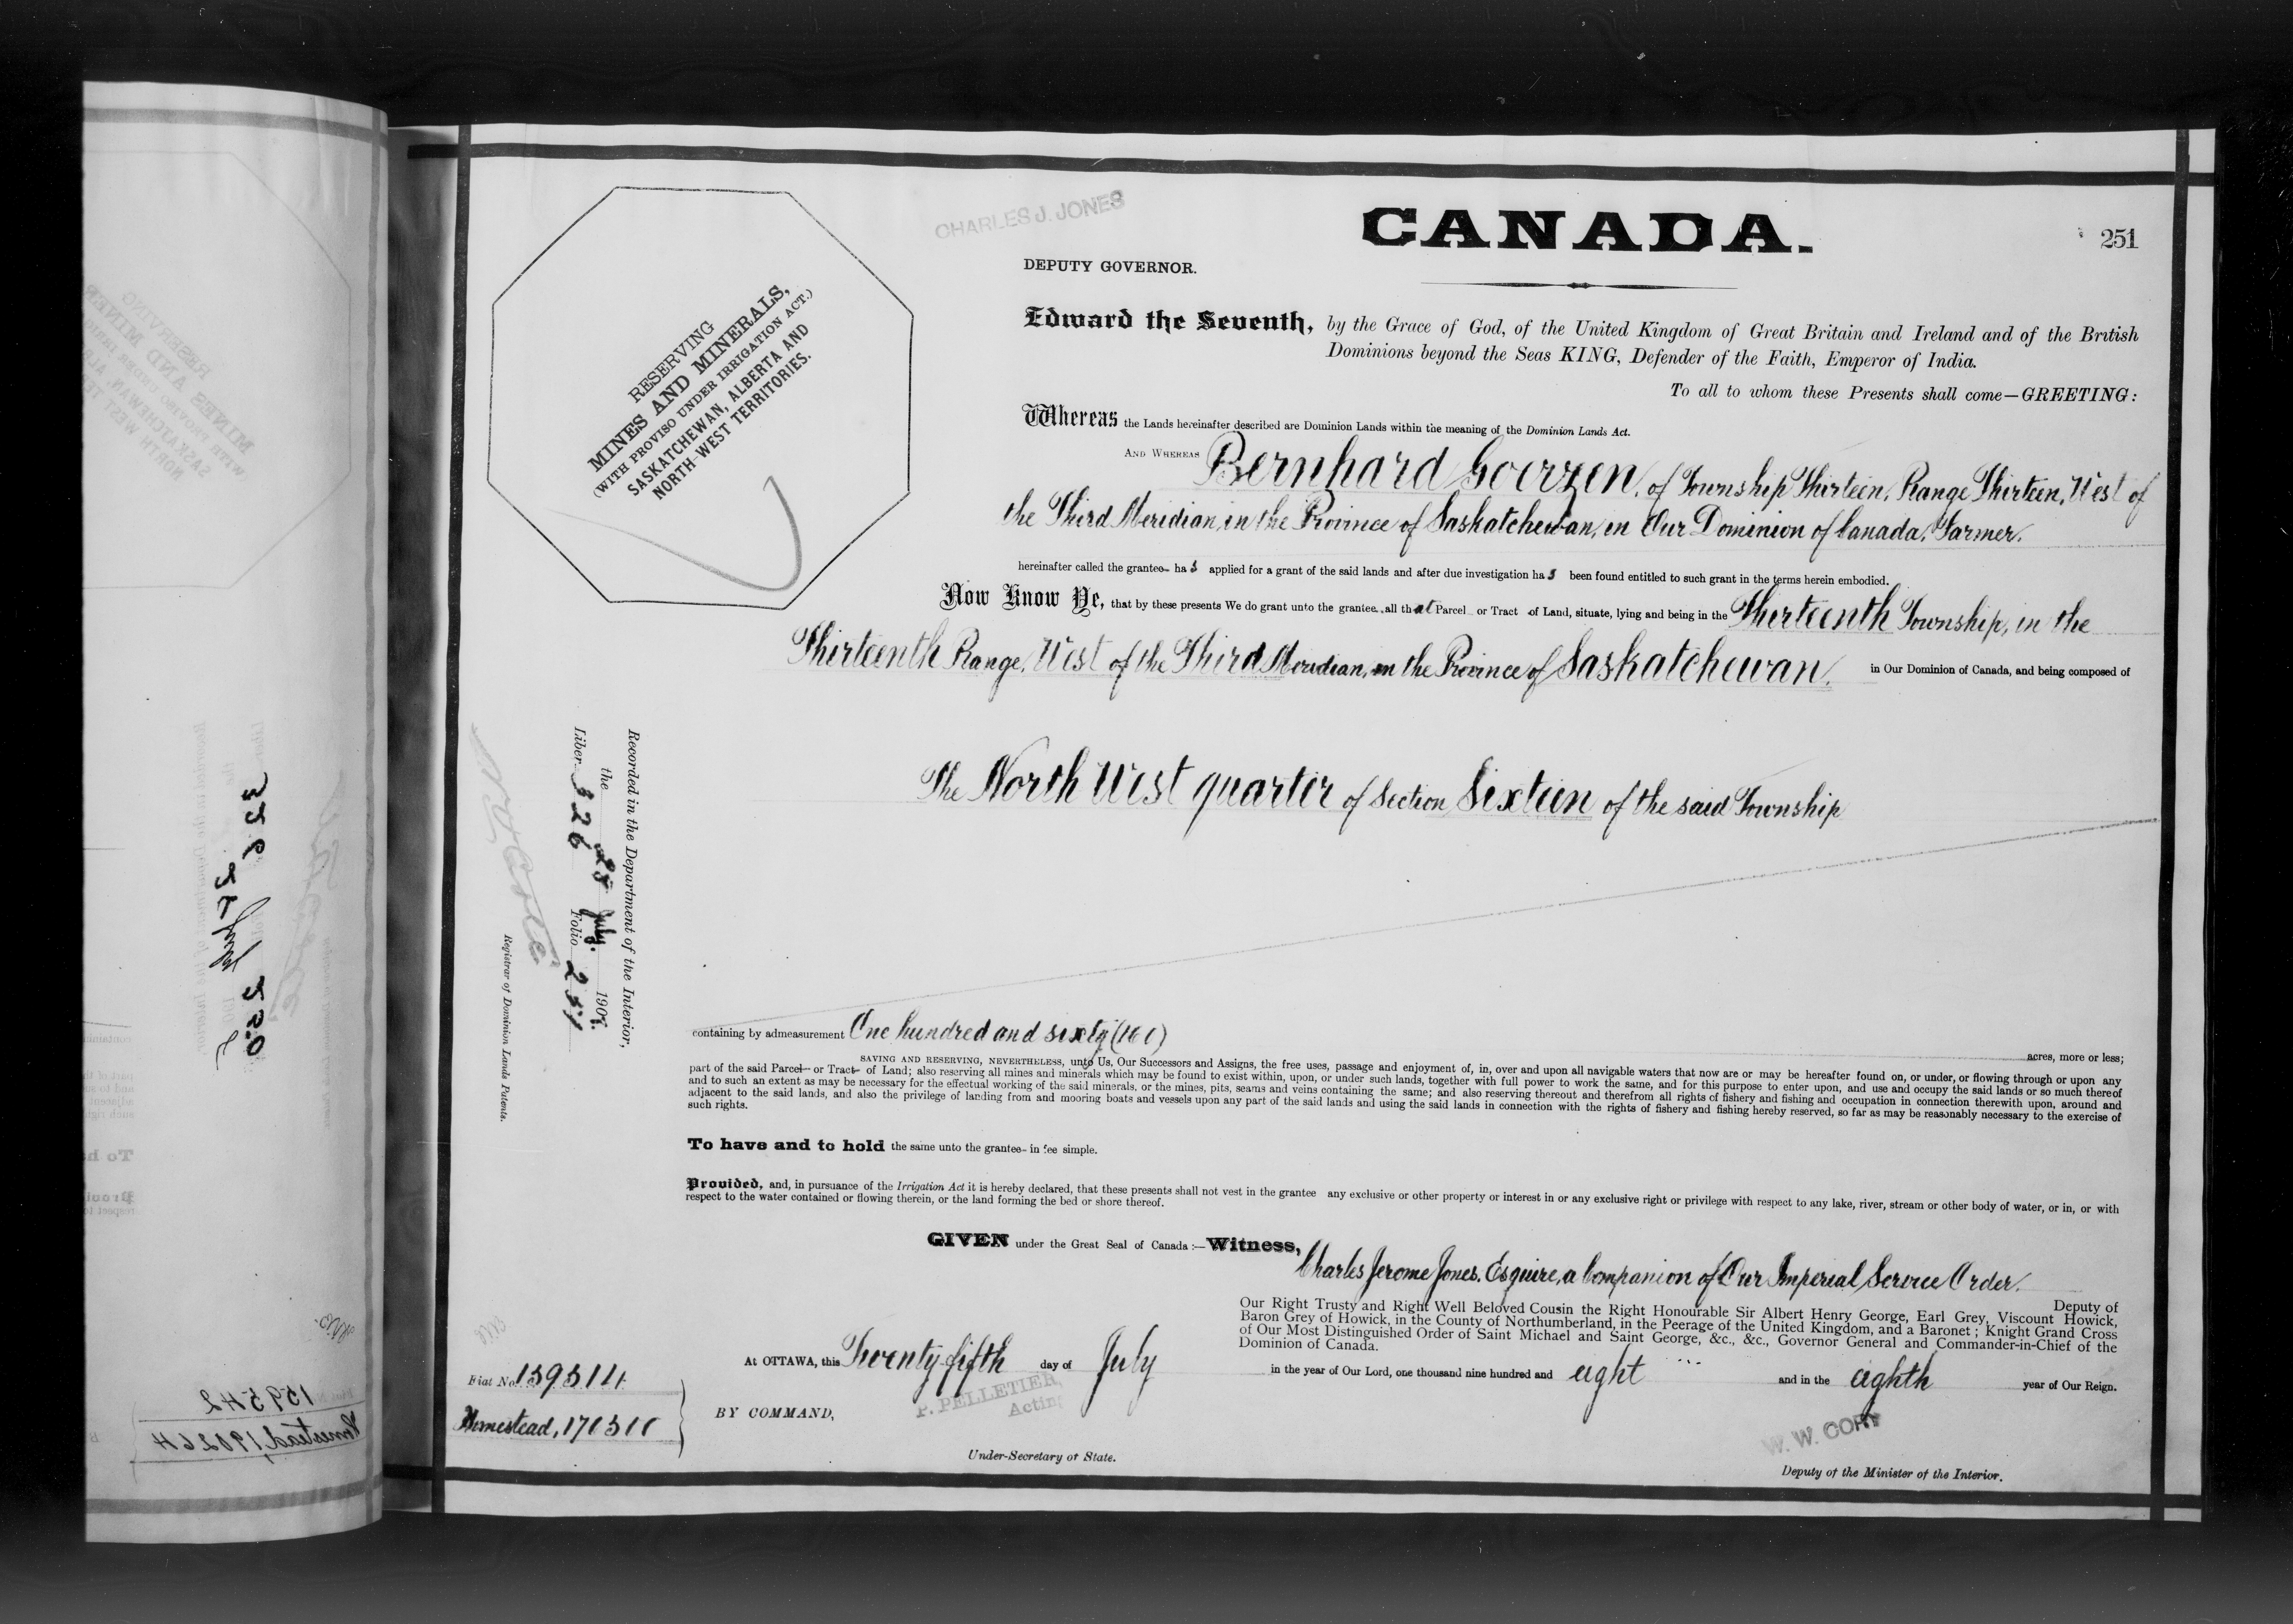 CHARLES J. JONES
DEPUTY GOVERNOR.
CANADA.
251
RESERVING
MINES AND MINERALS,
(WITH PROVISO UNDER IRRIGATION ACT.)
SASKATCHEWAN, ALBERTA AND
NORTH-WEST TERRITORIES.
Edward the Seventh, by the Grace of God, of the United Kingdom of Great Britain and Ireland and of the British
Dominions beyond the Seas KING, Defender of the Faith, Emperor of India.
To all to whom these Presents shall come—GREETING:
Whereas the Lands hereinafter described are Dominion Lands within the meaning of the Dominion Lands Act.
AND WHEREAS Bernhard Goerzen, of Township Thirteen, Range Thirteen, West of
the Third Meridian, in the Province of Saskatchewan, in Our Dominion of Canada, Farmer.
hereinafter called the grantee has applied for a grant of the said lands and after due investigation has been found entitled to such grant in the terms herein embodied.
Now Know Ye, that by these presents We do grant unto the grantee, all that Parcel or Tract of Land, situate, lying and being in the Thirteenth Township, in the
Thirteenth Range, West of the Third Meridian, in the Province of Saskatchewan, in Our Dominion of Canada, and being composed of
The North West quarter of Section Sixteen of the said Township
Recorded in the Department of the Interior,
the 25 July. 1908.
Liber 326 Folio 251
Registrar of Dominion Lands Patents.
containing by admeasurement One hundred and sixty (160) acres, more or less;
SAVING AND RESERVING, NEVERTHELESS, unto Us, Our Successors and Assigns, the free uses, passage and enjoyment of, in, over and upon all navigable waters that now are or may be hereafter found on, or under, or flowing through or upon any
part of the said Parcel or Tract of Land; also reserving all mines and minerals which may be found to exist within, upon, or under such lands, together with full power to work the same, and for this purpose to enter upon, and use and occupy the said lands or so much thereof
and to such an extent as may be necessary for the effectual working of the said minerals, or the mines, pits, seams and veins containing the same; and also reserving thereout and therefrom all rights of fishery and fishing and occupation in connection therewith upon, around and
adjacent to the said lands, and also the privilege of landing from and mooring boats and vessels upon any part of the said lands and using the said lands in connection with the rights of fishery and fishing hereby reserved, so far as may be reasonably necessary to the exercise of
such rights.
To have and to hold the same unto the grantee in fee simple.
Provided, and, in pursuance of the Irrigation Act it is hereby declared, that these presents shall not vest in the grantee any exclusive or other property or interest in or any exclusive right or privilege with respect to any lake, river, stream or other body of water, or in, or with
respect to the water contained or flowing therein, or the land forming the bed or shore thereof.
GIVEN under the Great Seal of Canada :—Witness, Charles Jerome Jones, Esquire, a Companion of Our Imperial Service Order.
Deputy of
Our Right Trusty and Right Well Beloved Cousin the Right Honourable Sir Albert Henry George, Earl Grey, Viscount Howick,
Baron Grey of Howick, in the County of Northumberland, in the Peerage of the United Kingdom, and a Baronet; Knight Grand Cross
of Our Most Distinguished Order of Saint Michael and Saint George, &c., &c., Governor General and Commander-in-Chief of the
Dominion of Canada.
At OTTAWA, this Twenty fifth day of July in the year of Our Lord, one thousand nine hundred and eight and in the eighth year of Our Reign.
Fiat No.
Homestead,
BY COMMAND,
P. PELLETIER,
Acting
Under-Secretary of State.
W. W. CORY
Deputy of the Minister of the Interior.